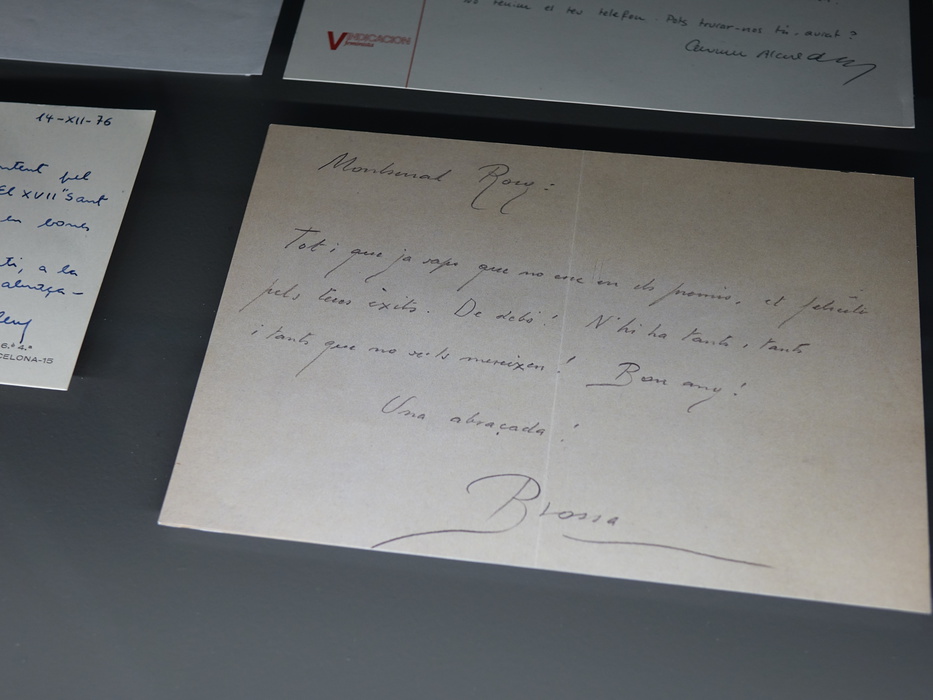 No tenim el teu telefon. Pots trucar-nos tú, aviat?
Carmen Alcalde
VINDICACION
feminista
14-XII-76
content pel
El XVII "Sant
en bones
a la
abraça-
6.è 4.ª
CELONA-15
Montserrat Roig:
Tot i que ja saps que no crec en els premis, et felicito
pels teus èxits. De debò! N'hi ha tants i tants
i tants que no se'ls mereixen! Bon any!
Una abraçada!
Brossa